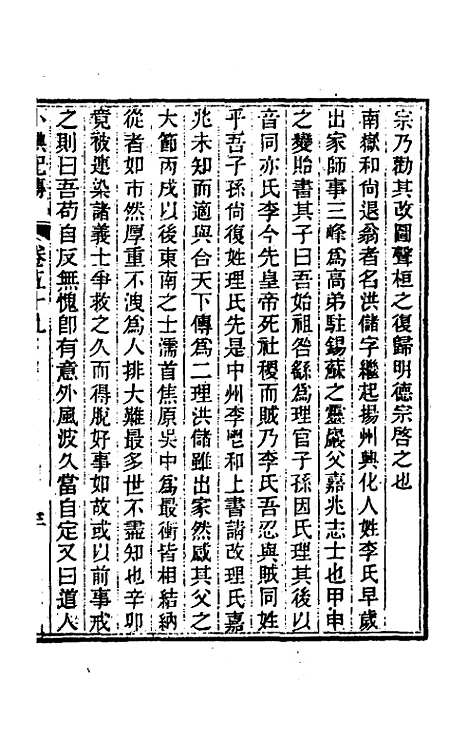 宗乃勸其改圖聲桓之復歸明德宗啓之也
南嶽和尚退翁者名洪儲字繼起揚州興化人姓李氏早歲
出家師事三峰爲高弟駐錫蘇之靈巖父嘉兆志士也甲申
之變貽書其子曰吾始祖咎繇爲理官子孫因氏理其後以
音同亦氏李今先皇帝死社稷而賊乃李氏吾忍與賊同姓
乎吾子孫尙復姓理氏先是中州李鬯和上書請改理氏嘉
兆未知而適與合天下傳爲二理洪儲雖出家然感其父之
大節丙戌以後東南之士濡首焦原吳中爲最衝皆相結納
從者如市然厚重不洩爲人排大難最多世不盡知也辛卯
竟被連染諸義士爭救之久而得脫好事如故或以前事戒
之則曰吾苟自反無愧卽有意外風波久當自定又曰道人
小腆紀傳 卷五十九